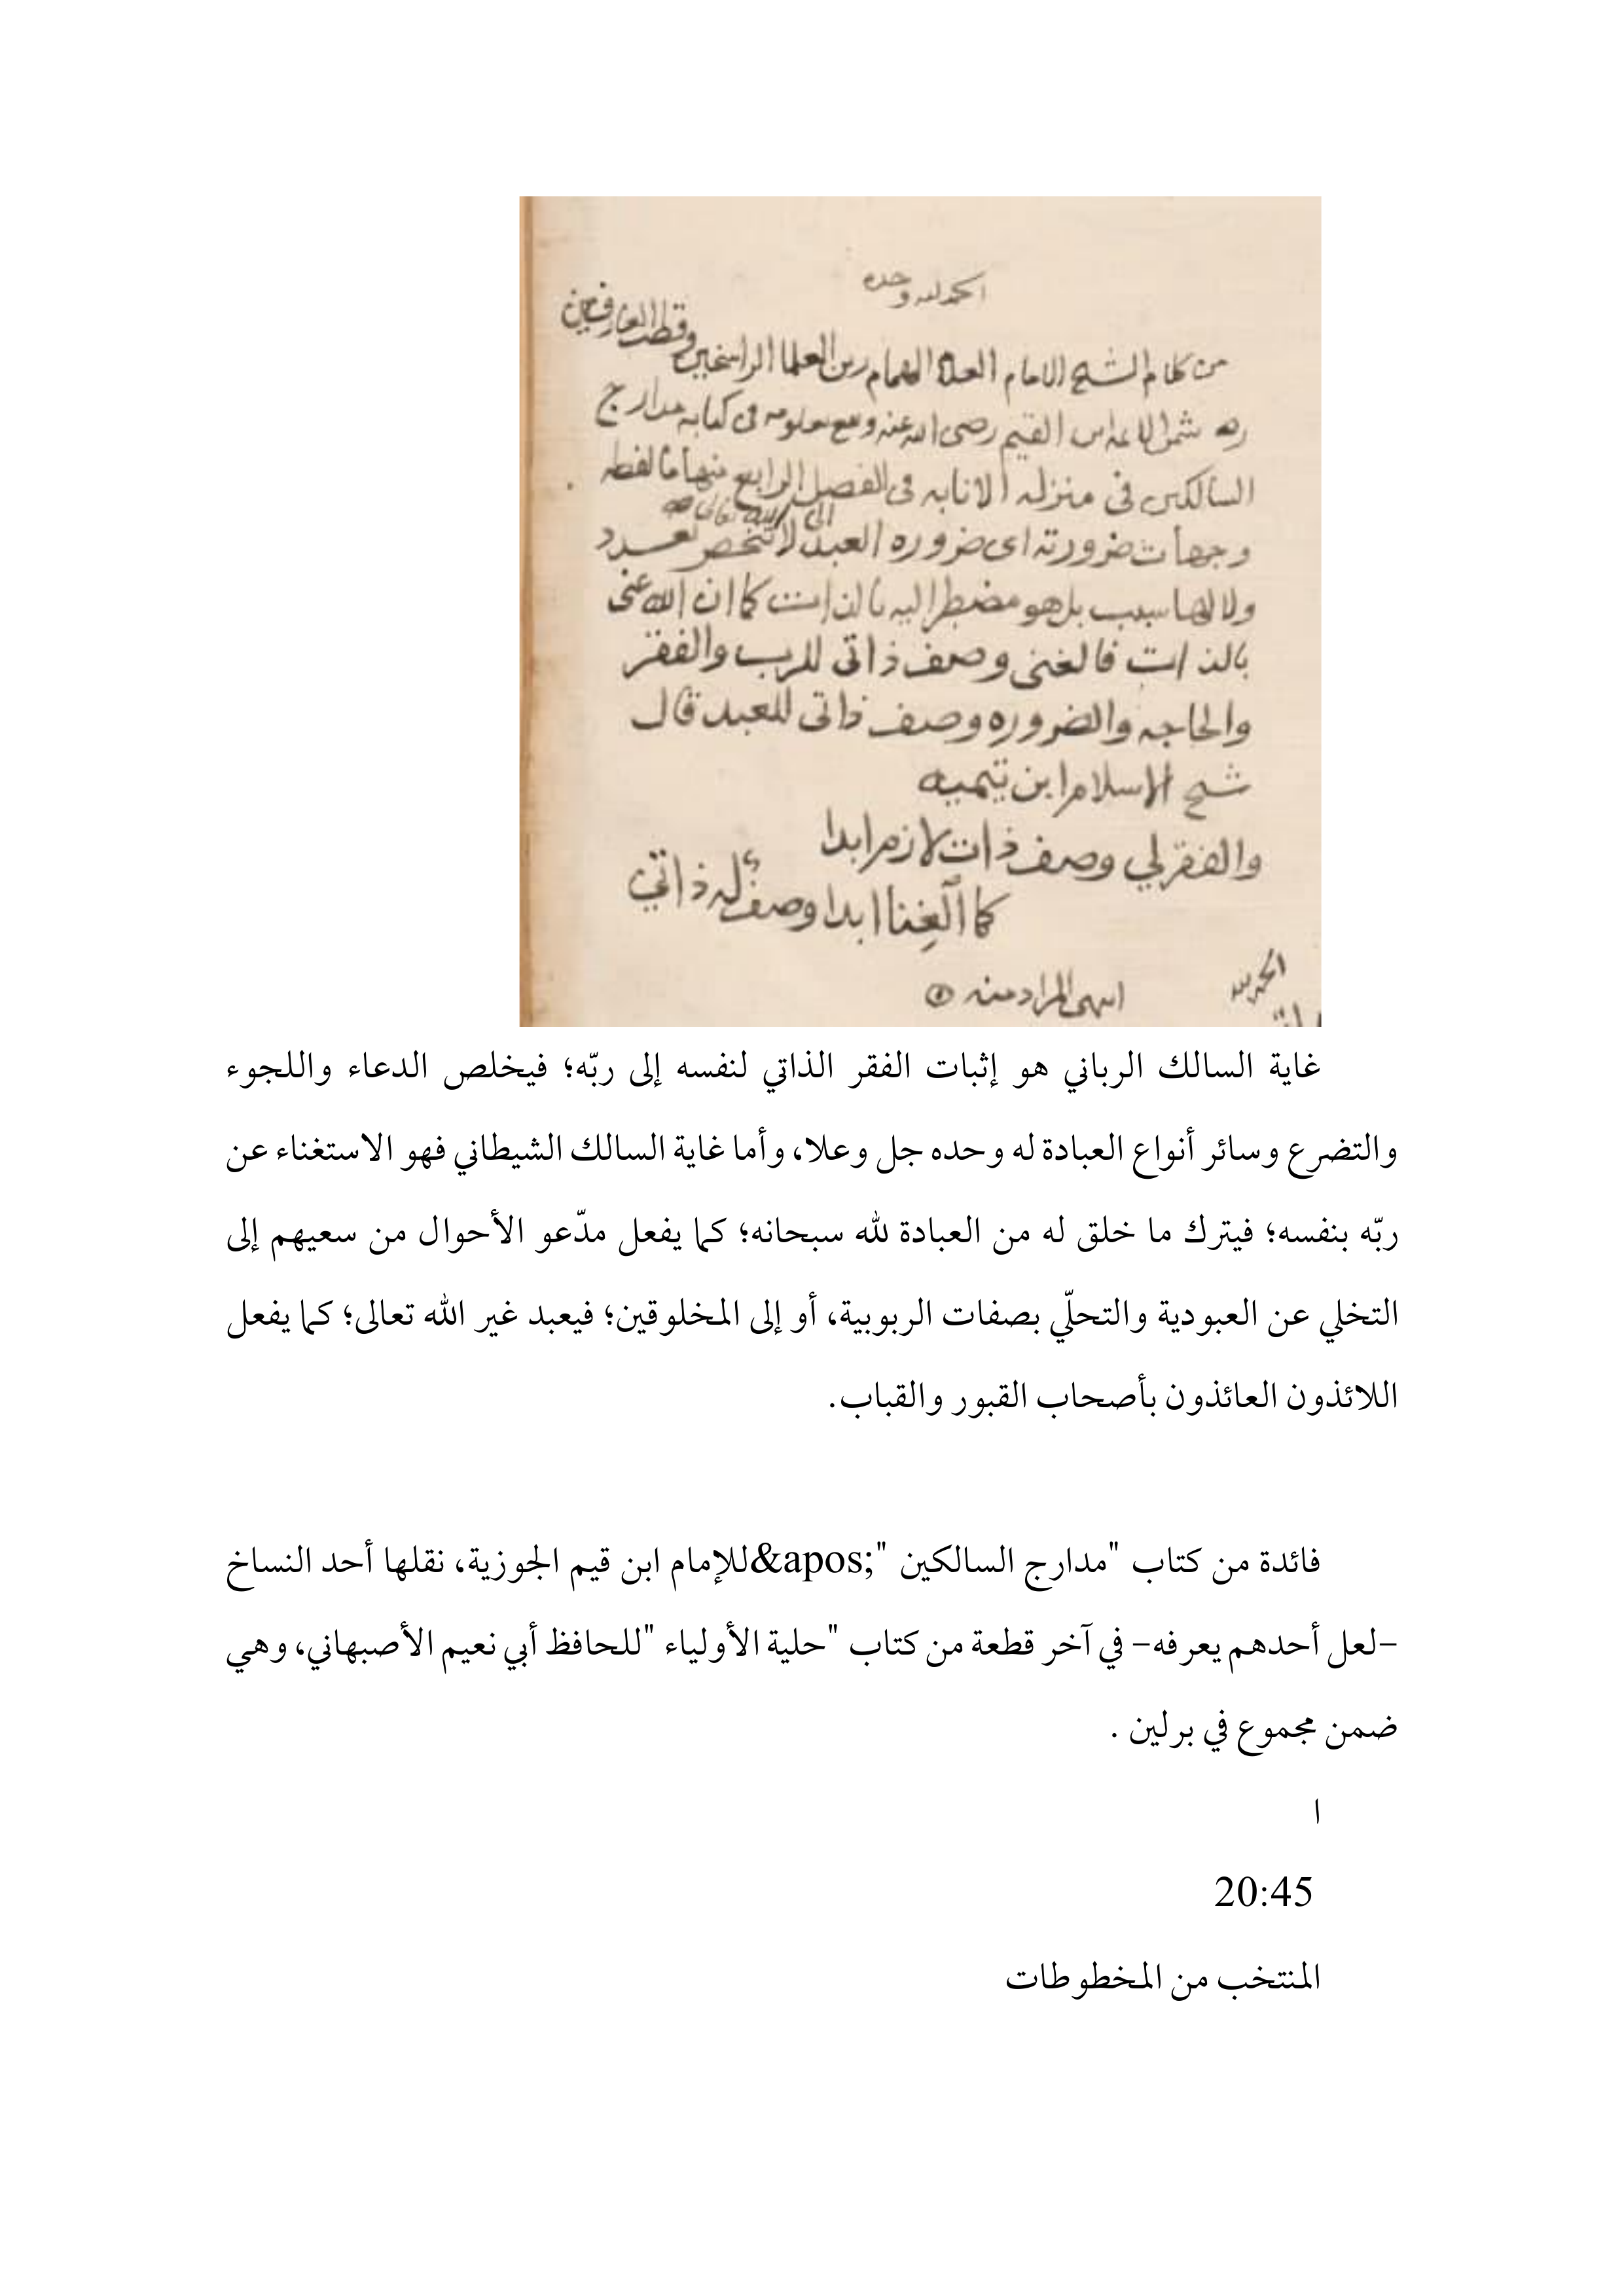 الحمد لله وحده
من كلام الشيخ الامام العلامة الهمام زين العلما الراسخين وقطب العارفين
شمس الدين ابن القيم رضى الله عنه ونفع بعلومه فى كتابه مدارج
السالكين فى منزله الانابه فى الفصل الرابع منها ما لفظه
وجهات ضرورته اى ضروره العبد الى الله تعالى لا تنحصر بعدد
ولا لها سبب بل هو مضطر اليه بالذات كما ان الله غنى
بالذات فالغنى وصف ذاتى للرب والفقر
والحاجه والضروره وصف ذاتى للعبد قال
شيخ الاسلام ابن تيميه
والفقر لي وصف ذات لازم ابدا
كما الغنا ابدا وصف له ذاتي
انتهى المراد منه
الحمد لله
غاية السالك الرباني هو إثبات الفقر الذاتي لنفسه إلى ربّه؛ فيخلص الدعاء واللجوء
والتضرع وسائر أنواع العبادة له وحده جل وعلا، وأما غاية السالك الشيطاني فهو الاستغناء عن
ربّه بنفسه؛ فيترك ما خلق له من العبادة لله سبحانه؛ كما يفعل مدّعو الأحوال من سعيهم إلى
التخلي عن العبودية والتحلّي بصفات الربوبية، أو إلى المخلوقين؛ فيعبد غير الله تعالى؛ كما يفعل
اللائذون العائذون بأصحاب القبور والقباب.
فائدة من كتاب "مدارج السالكين "&apos;للإمام ابن قيم الجوزية، نقلها أحد النساخ
-لعل أحدهم يعرفه- في آخر قطعة من كتاب "حلية الأولياء "للحافظ أبي نعيم الأصبهاني، وهي
ضمن مجموع في برلين .
ا
20:45
المنتخب من المخطوطات